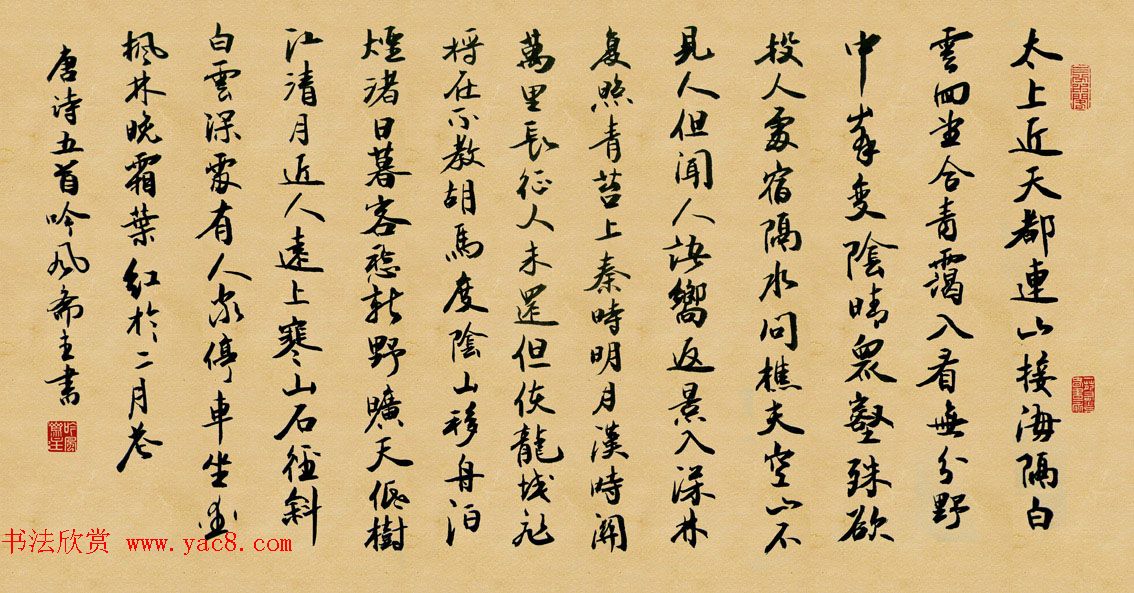 太上近天都連山接海隅白
雲回望合青靄入看無分野
中峯變陰晴眾壑殊欲
投人處宿隔水問樵夫空山不
見人但聞人語響返景入深林
复照青苔上秦時明月漢時關
萬里長征人未還但使龍城飛
將在不教胡馬度陰山移舟泊
煙渚日暮客愁新野曠天低樹
江清月近人遠上寒山石徑斜
白雲深處有人家停車坐愛
楓林晚霜葉紅於二月花
唐詩五首吟風齋主書
吟風齋主
书法欣赏 www.yac8.com